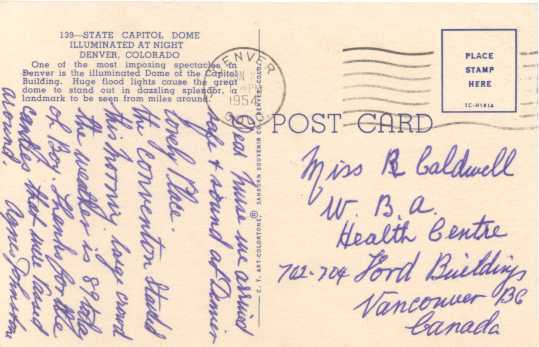 139—STATE CAPITOL DOME
ILLUMINATED AT NIGHT
DENVER, COLORADO
One of the most imposing spectacles in
Denver is the illuminated Dome of the Capitol
Building. Huge flood lights cause the great
dome to stand out in dazzling splendor, a
landmark to be seen from miles around.
DENVER
1954
PLACE
STAMP
HERE
1C-H181A
POST CARD
C. T. ART-COLORTONE ® SANBORN SOUVENIR CO., DENVER, COLO.
we arrived
safe & sound at Denver
lovely Place.
the convention started
this morning. large crowd
the weather is 89
of Box. Thanks for the
candies that were
around
Agnes Johnston
Miss R Caldwell
W. B. A.
Health Centre
702-704 Ford Buildings
Vancouver BC
Canada